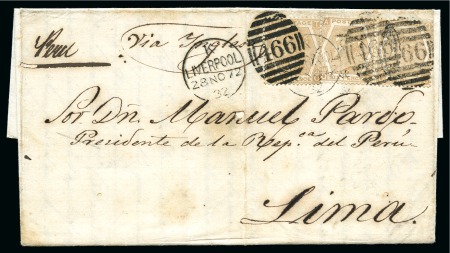 Peru
Via
LIVERPOOL
28 NO 72
32
466
466
66
Sor Dn. Manuel Pardo
Presidente de la Repca. del Perú
Lima.